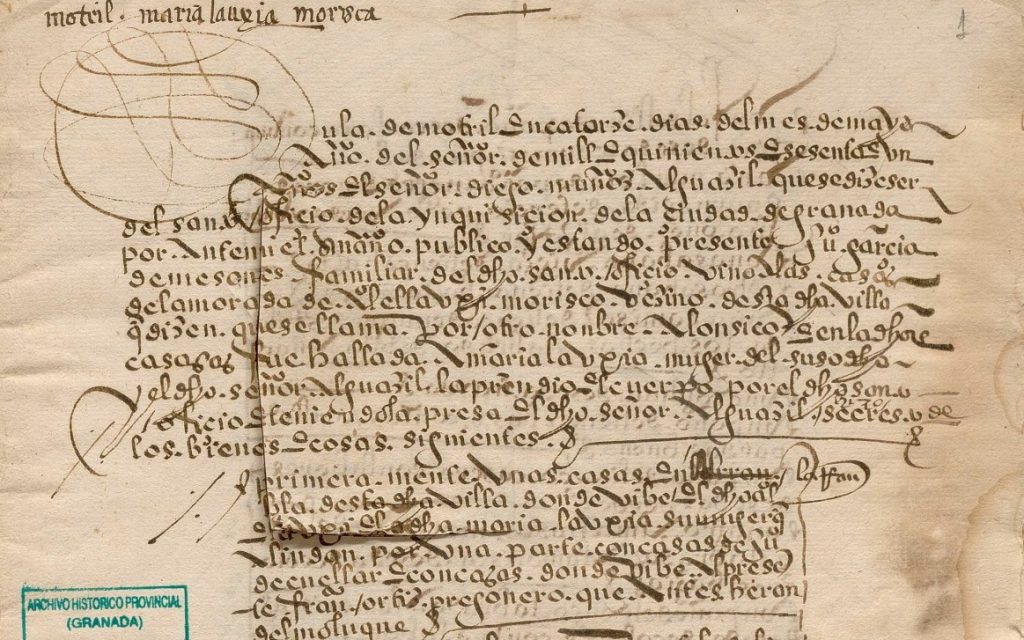 motril. maria lauxia morisca
1
villa. de motril en catorze. dias. del mes. de mayo
Año. del señor. de mill e quinientos e sesenta e un
años el señor. diego. muñoz. Alguazil. que se dize ser
del santo / oficio. de la ynquisicion. de la ciudad. de granada
por. Ante mi el escriuano. publico. y estando. presente Ju garcia
de mesones familiar. del dho. santo. / oficio vino A las. casas
de la morada de lauxi. morisco. vezino. desta dha villa
q dizen. que se llama. por / otro. nonbre Alonsico. e en las dhas
casas fue hallada. A maria lauxia. muger. del suso dho
y el dho. señor. Alguazil. la prendio el cuerpo. por el dho santo
oficio e teniendola. presa el dho. señor. Alguazil secresto de
los. bienes e cosas. siguientes.
primera mente. unas. casas. en la Ran
bla. desta dha villa. donde vibe el dho al
e la dha. maria lauxia su muger q
Alindan. por. una. parte. con casas de Ju
de cuellar e con casas. donde vibe. Al prese
te fran / ortis. pregonero. que. Antes heran
del moluque
ARCHIVO HISTORICO PROVINCIAL
(GRANADA)